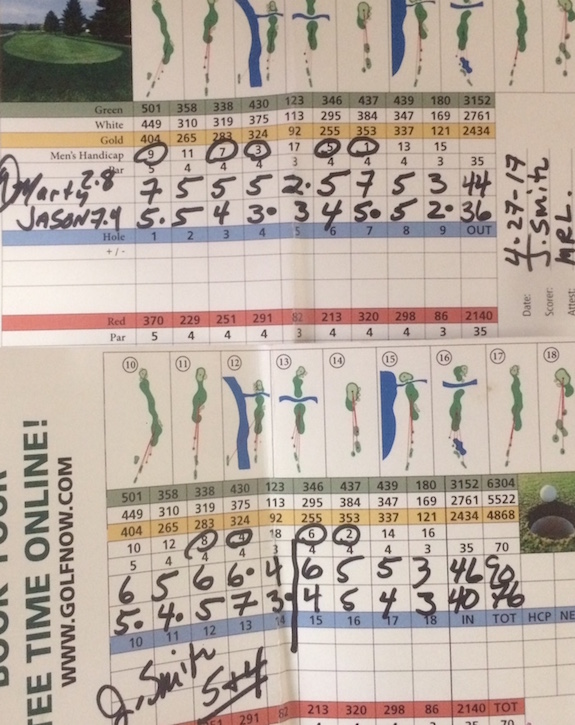 Green 501 358 338 430 123 346 437 439 180 3152
White 449 310 319 375 113 295 384 347 169 2761
Gold 404 265 283 324 92 255 353 337 121 2434
Men's Handicap 9 11 7 3 17 5 1 13 15
Par 5 4 4 4 3 4 4 4 3 35
Marty 2.8 7 5 5 5 2 5 7 5 3 44
JASON 7.9 5 5 4 3 3 4 5 5 2 36
Hole 1 2 3 4 5 6 7 8 9 OUT
+/-
Red 370 229 251 291 82 213 320 298 86 2140
Par 5 4 4 4 3 4 4 4 3 35
Date: 4-27-17
Scorer: J. Smith
Attest: MRL.
10 11 12 13 14 15 16 17 18
501 358 338 430 123 346 437 439 180 3152 6304
449 310 319 375 113 295 384 347 169 2761 5522
404 265 283 324 92 255 353 337 121 2434 4868
10 12 8 4 18 6 2 14 16
5 4 4 4 3 4 4 4 3 35 70
6 5 6 6 4 6 5 5 3 46 90
5 4 5 7 3 4 5 4 3 40 76
10 11 12 13 14 15 16 17 18 IN TOT HCP NE
J. Smith
5+4
291 82 213 320 298 86 2140 TOT
TEE TIME ONLINE!
WWW.GOLFNOW.COM